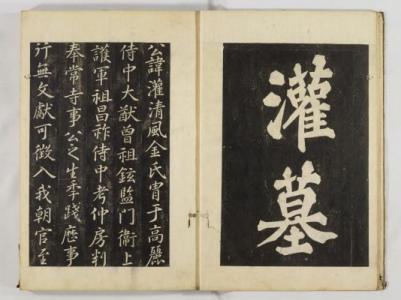 灌墓
公諱灌清風金氏胄于高麗
侍中大猷曾祖鉉監門衛上
護軍祖昌祚侍中考仲房判
奉常寺事公之生年踐歷事
行無文獻可徵入我朝官至